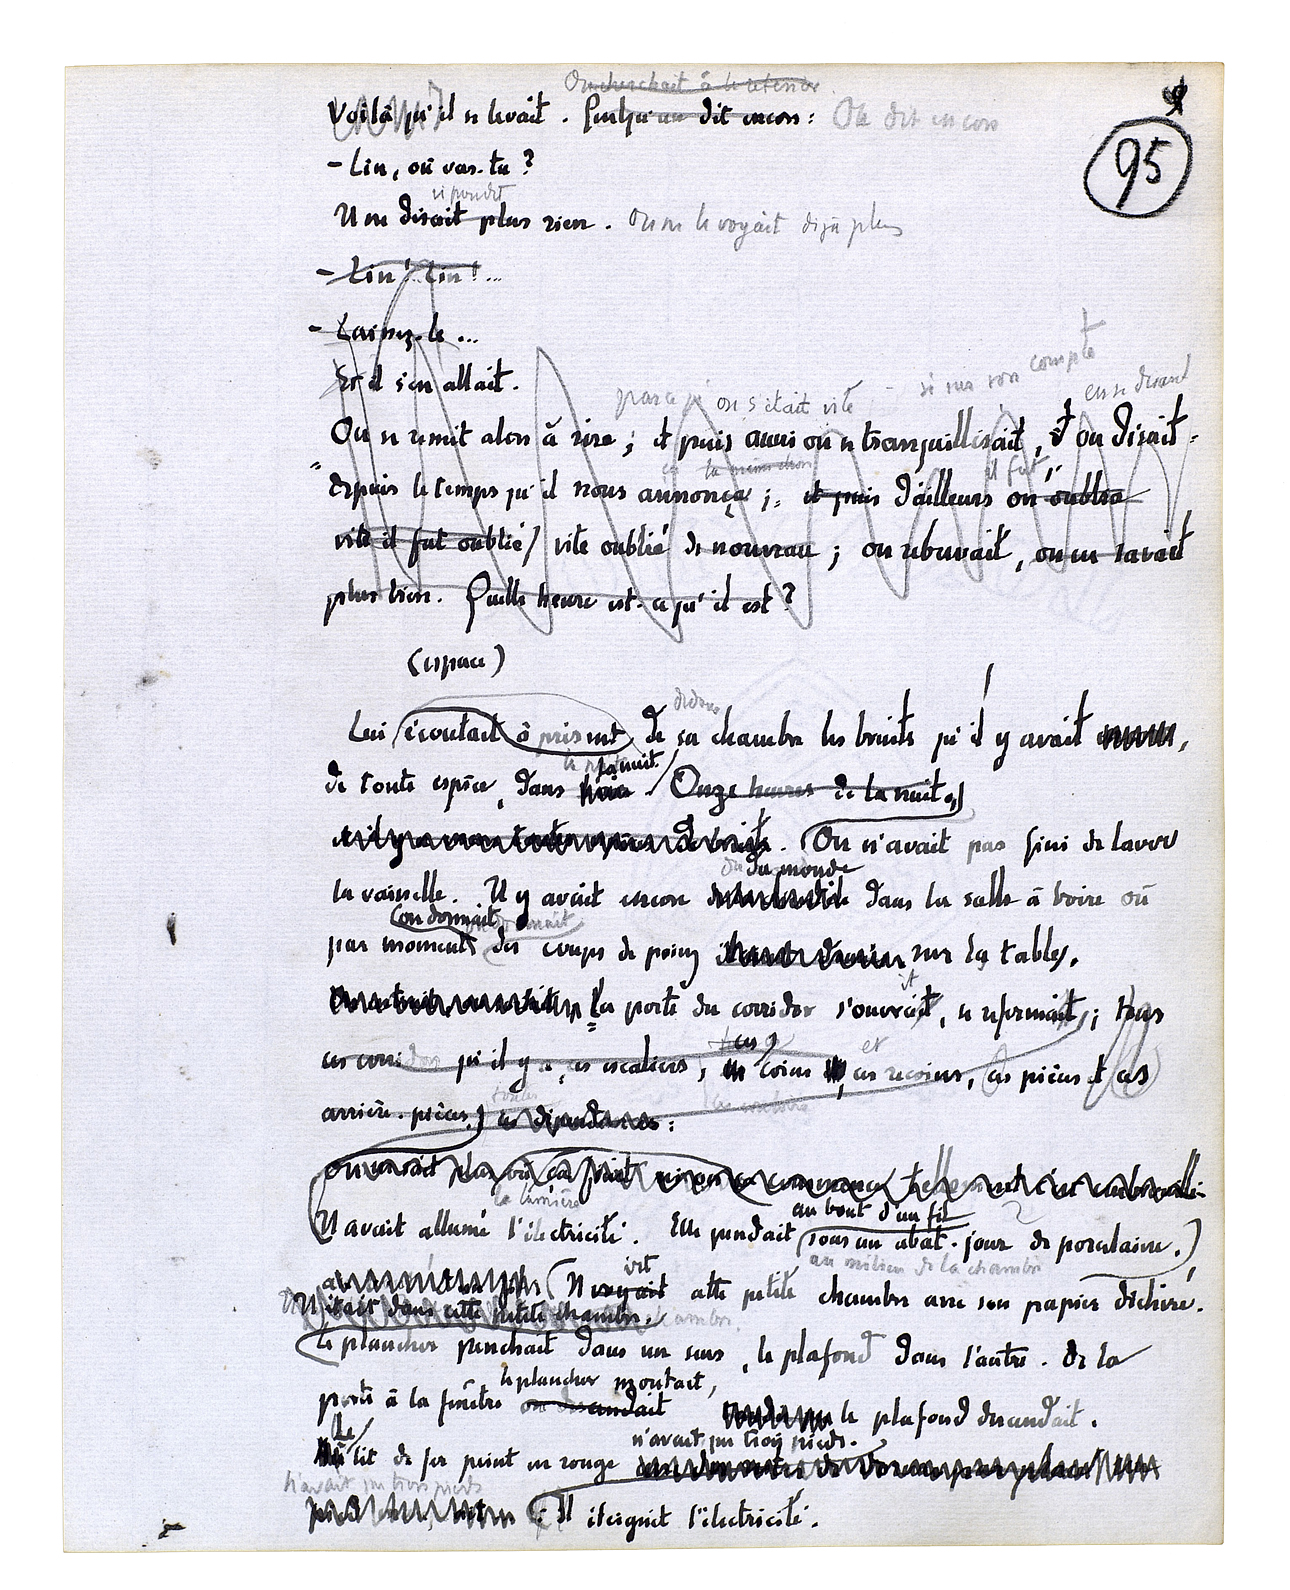 On cherchait à le retenir.
Voilà qu'il se levait. Quelqu'un dit encore : On dit encore
95
– Lin, où vas-tu ?
répondit
Il ne disait plus rien. On ne le voyait déjà plus
– Lin ! Lin ! ...
– Laissez-le ...
Et il s'en allait.
parce qu' on s'était vite si sur son compte en se disant
On se remit alors à rire ; et puis aussi on se tranquillisait, et on disait :
la même chose il fut
depuis le temps qu'il nous annonça ; et puis d'ailleurs on oublia
vite il fut oublié / vite oublié de nouveau ; on rebuvait, on en savait
plus rien. Quelle heure est-ce qu'il est ?
(espace)
dedans
Lui écoutait à présent de sa chambre les bruits qu'il y avait
la nuit.
de toute espèce, dans Onze heures de la nuit
On n'avait pas fini de laver
du monde
la vaisselle. Il y avait encore dans la salle à boire où
on donnait
par moments des coups de poing sur les tables.
it
la porte du corridor s'ouvrait, se refermait ; tous
ces et
ces corridors qu'il y a, ces escaliers, coins ces recoins, ces pièces et ces
toutes
arrière-pièces, ces dépendances :
la lumière
au bout d'un fil
Il avait allumé l'électricité. Elle pendait sous un abat-jour de porcelaine.
au milieu de la chambre
vit
Il voyait cette petite chambre avec son papier déchiré.
Il était dans cette petite chambre.
Le plancher penchait dans un sens, le plafond dans l'autre. De la
le plancher montait,
porte à la fenêtre on descendait le plafond descendait.
Le n'avait que trois pieds.
lit de fer peint en rouge
n'avait que trois pieds
Il éteignit l'électricité.